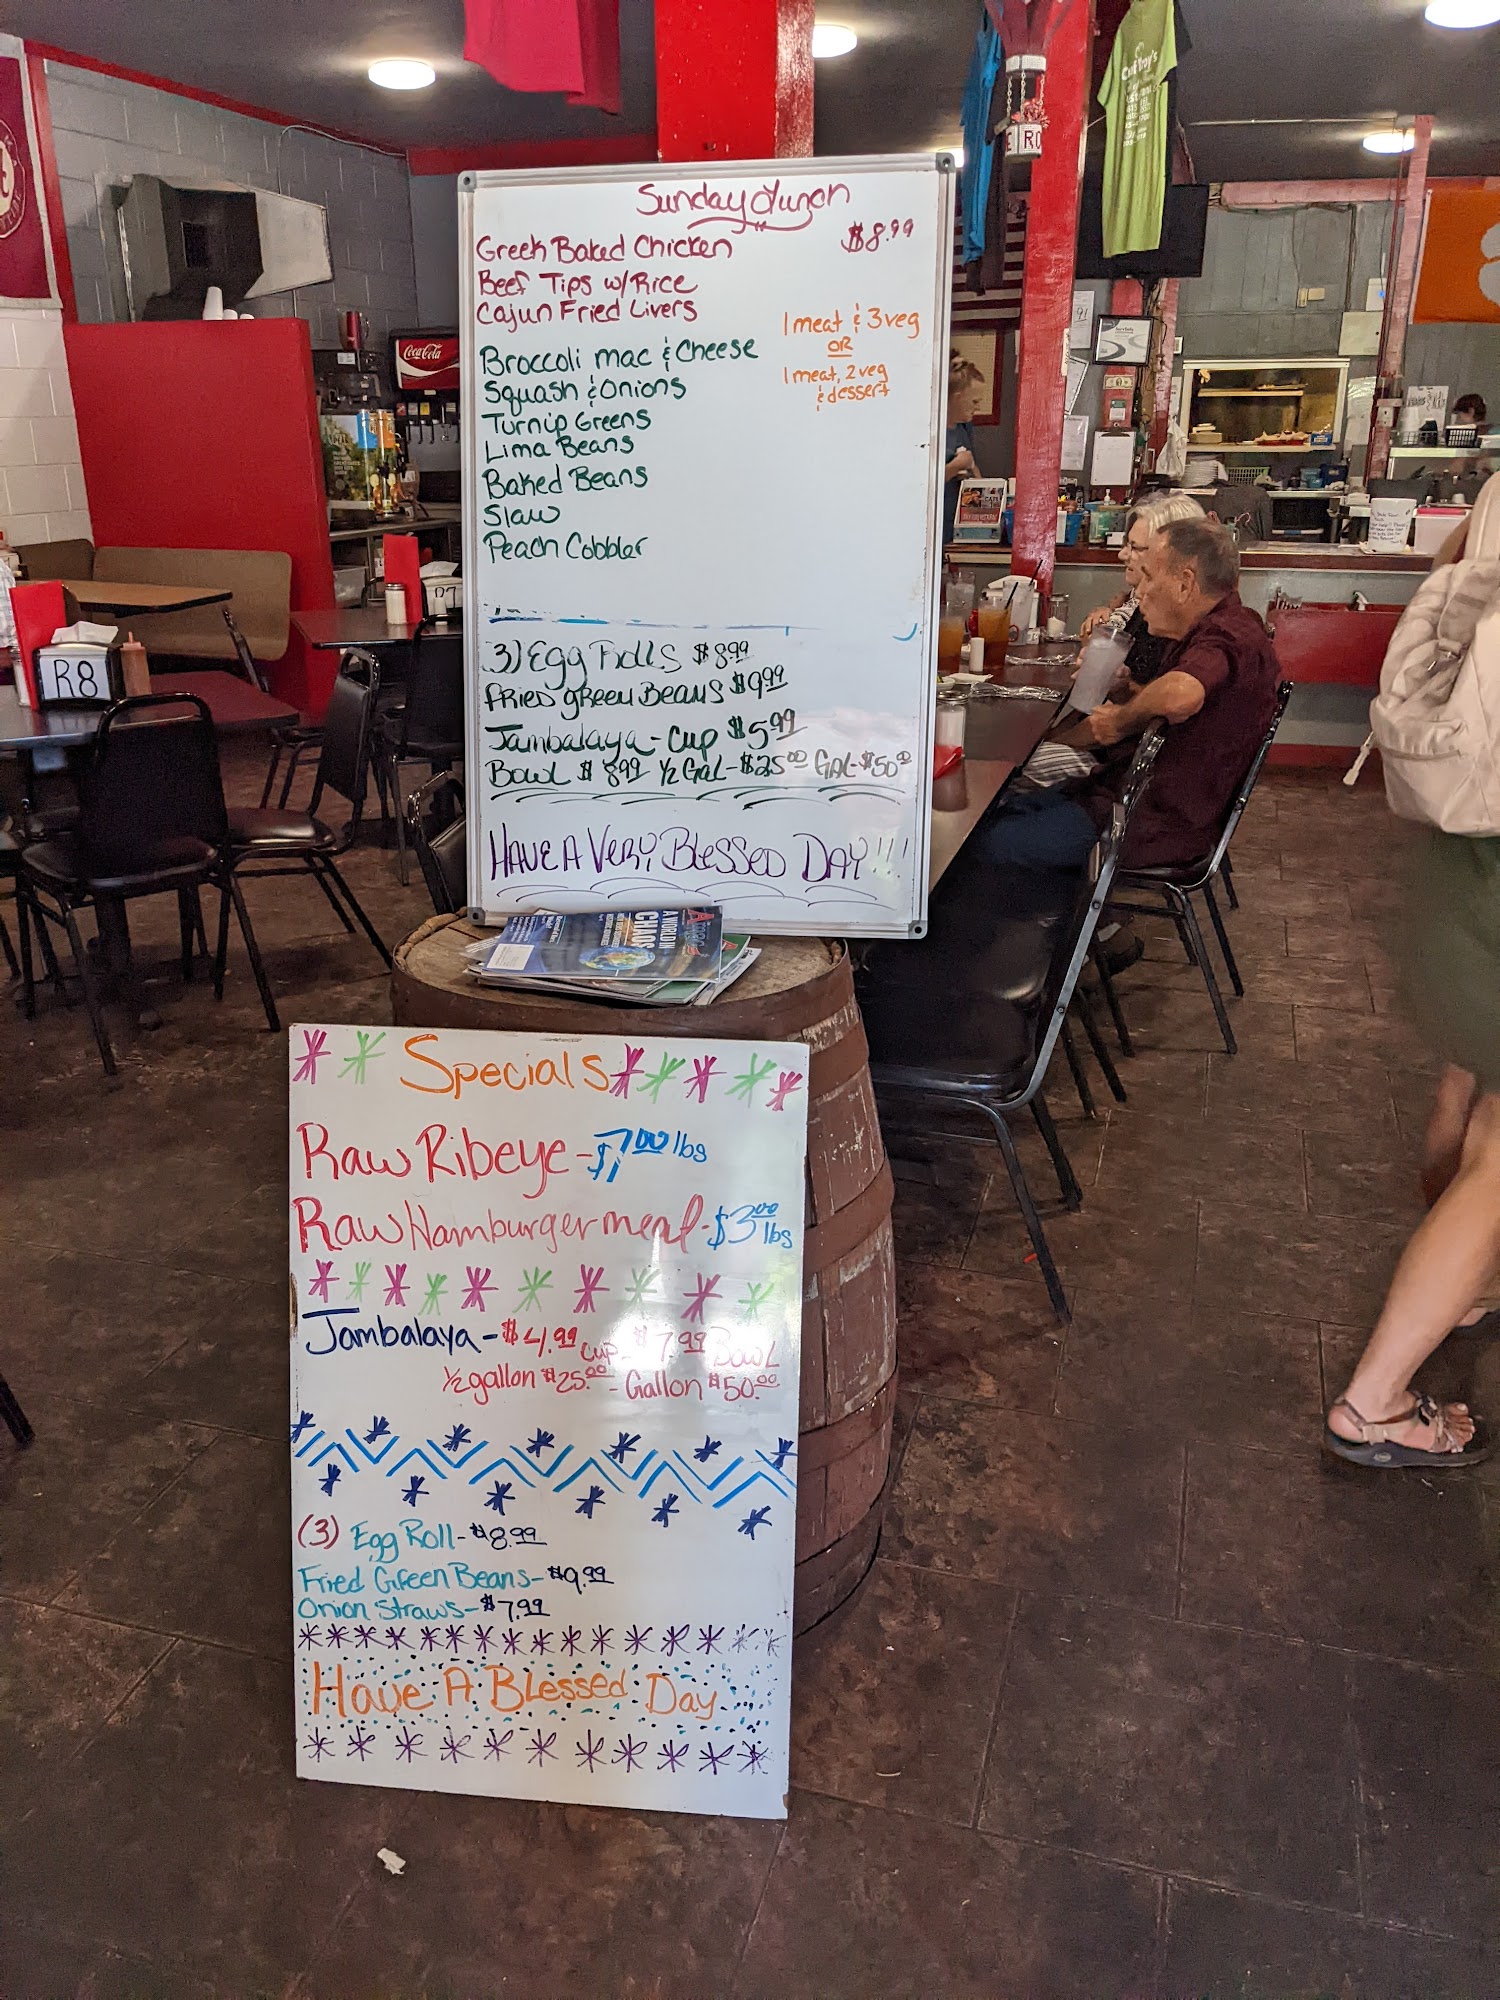 Sunday Lunch
$8.99
Greek Baked Chicken
Beef Tips w/Rice
Cajun Fried Livers
1 meat & 3 veg
OR
1 meat, 2 veg
& dessert
Broccoli mac & Cheese
Squash & Onions
Turnip Greens
Lima Beans
Baked Beans
Slaw
Peach Cobbler
3) Egg Rolls $8.99
Fried green Beans $9.99
Jambalaya - Cup $5.99
Bowl $8.99 1/2 Gal - $25.00 Gal - $50.00
HAVE A VERY BLESSED DAY!!!
A WORLD IN
CHAOS
Specials
Raw Ribeye - $7.00 lbs
Raw Hamburger meat - $3.00 lbs
Jambalaya - $4.99 cup - $7.99 Bowl
1/2 gallon $25.00 - Gallon $50.00
(3) Egg Roll - $8.99
Fried Green Beans - $9.99
Onion Straws - $7.99
Have A Blessed Day
Coca-Cola
R8
R7
E RO